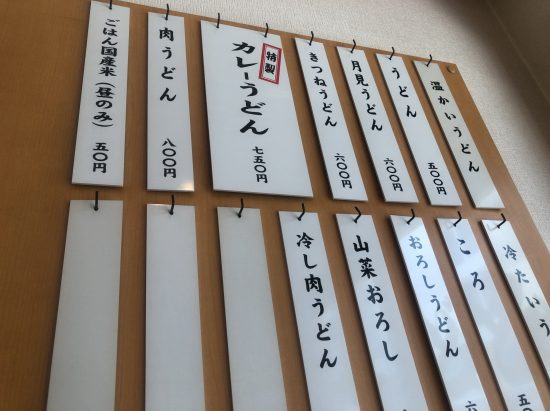 温かいうどん
うどん 五〇〇円
月見うどん 六〇〇円
きつねうどん 六〇〇円
特製
カレーうどん 七五〇円
肉うどん 八〇〇円
ごはん国産米（昼のみ） 五〇円
冷たいう
ころ 五
おろしうどん 六
山菜おろし
冷し肉うどん